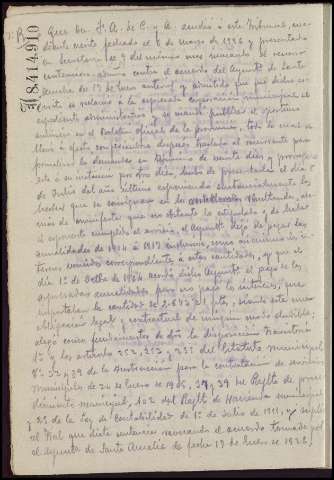 Que D. J. A. de C. y A. acudió a este Tribunal, me-
diante escrito fechado el 6 de Marzo de 1926 y presentado
en Secretaría el 9 del mismo mes iniciando el recurso
contencioso contra el acuerdo del Ayuntº de Santa
Amalia de 19 de Enero anterior y admitido que fué dicho es-
crito se reclamó a la expresada corporación municipal el
expediente administrativo y se mandó publicar el oportuno
anuncio en el Boletín Oficial de la provincia, todo lo cual se
llevó a efecto con
formalizar la demanda en término de veinte días y prorrogado
este a su instancia por otro diez, dentro de
de Julio del año último exponiendo sustancialmente los
hechos que se consignan en los resultandos,
de manifiesto que no obstante lo estipulado y de haber
el exponente cumplido el servicio, el Ayuntº dejó de pagar las
anualidades de 1914 a 1917 inclusive, como asi mismo, in-
tereses vencidos correspondiente a estas cantidades, y que el
día 1º de Octbre de 1924 acordó dicho Ayuntº el pago de las
expresadas anualidades pero no pagó los intereses, que
importaban la cantidad de ptas, siendo esto una
obligacion legal y contractual de ningún modo eludible;
alegó como fundamentos de dro la disposición transitoria
1ª y los artículos 252, 253 y del Estatuto municipal
y 39 de la Instrucción para la contratación de servicios
Municipales de 24 de Enero de 1905, y 39 del Reglto de proce-
dimiento municipal, 102 del Reglto de Hacienda municipal
y de la Ley de Contabilidad de 1º de Julio de 1911, y suplicó
el Tral que dicte sentencia revocando el acuerdo tomado por
el Ayuntº de Santa Amalia de fecha 19 de Enero de 1926,